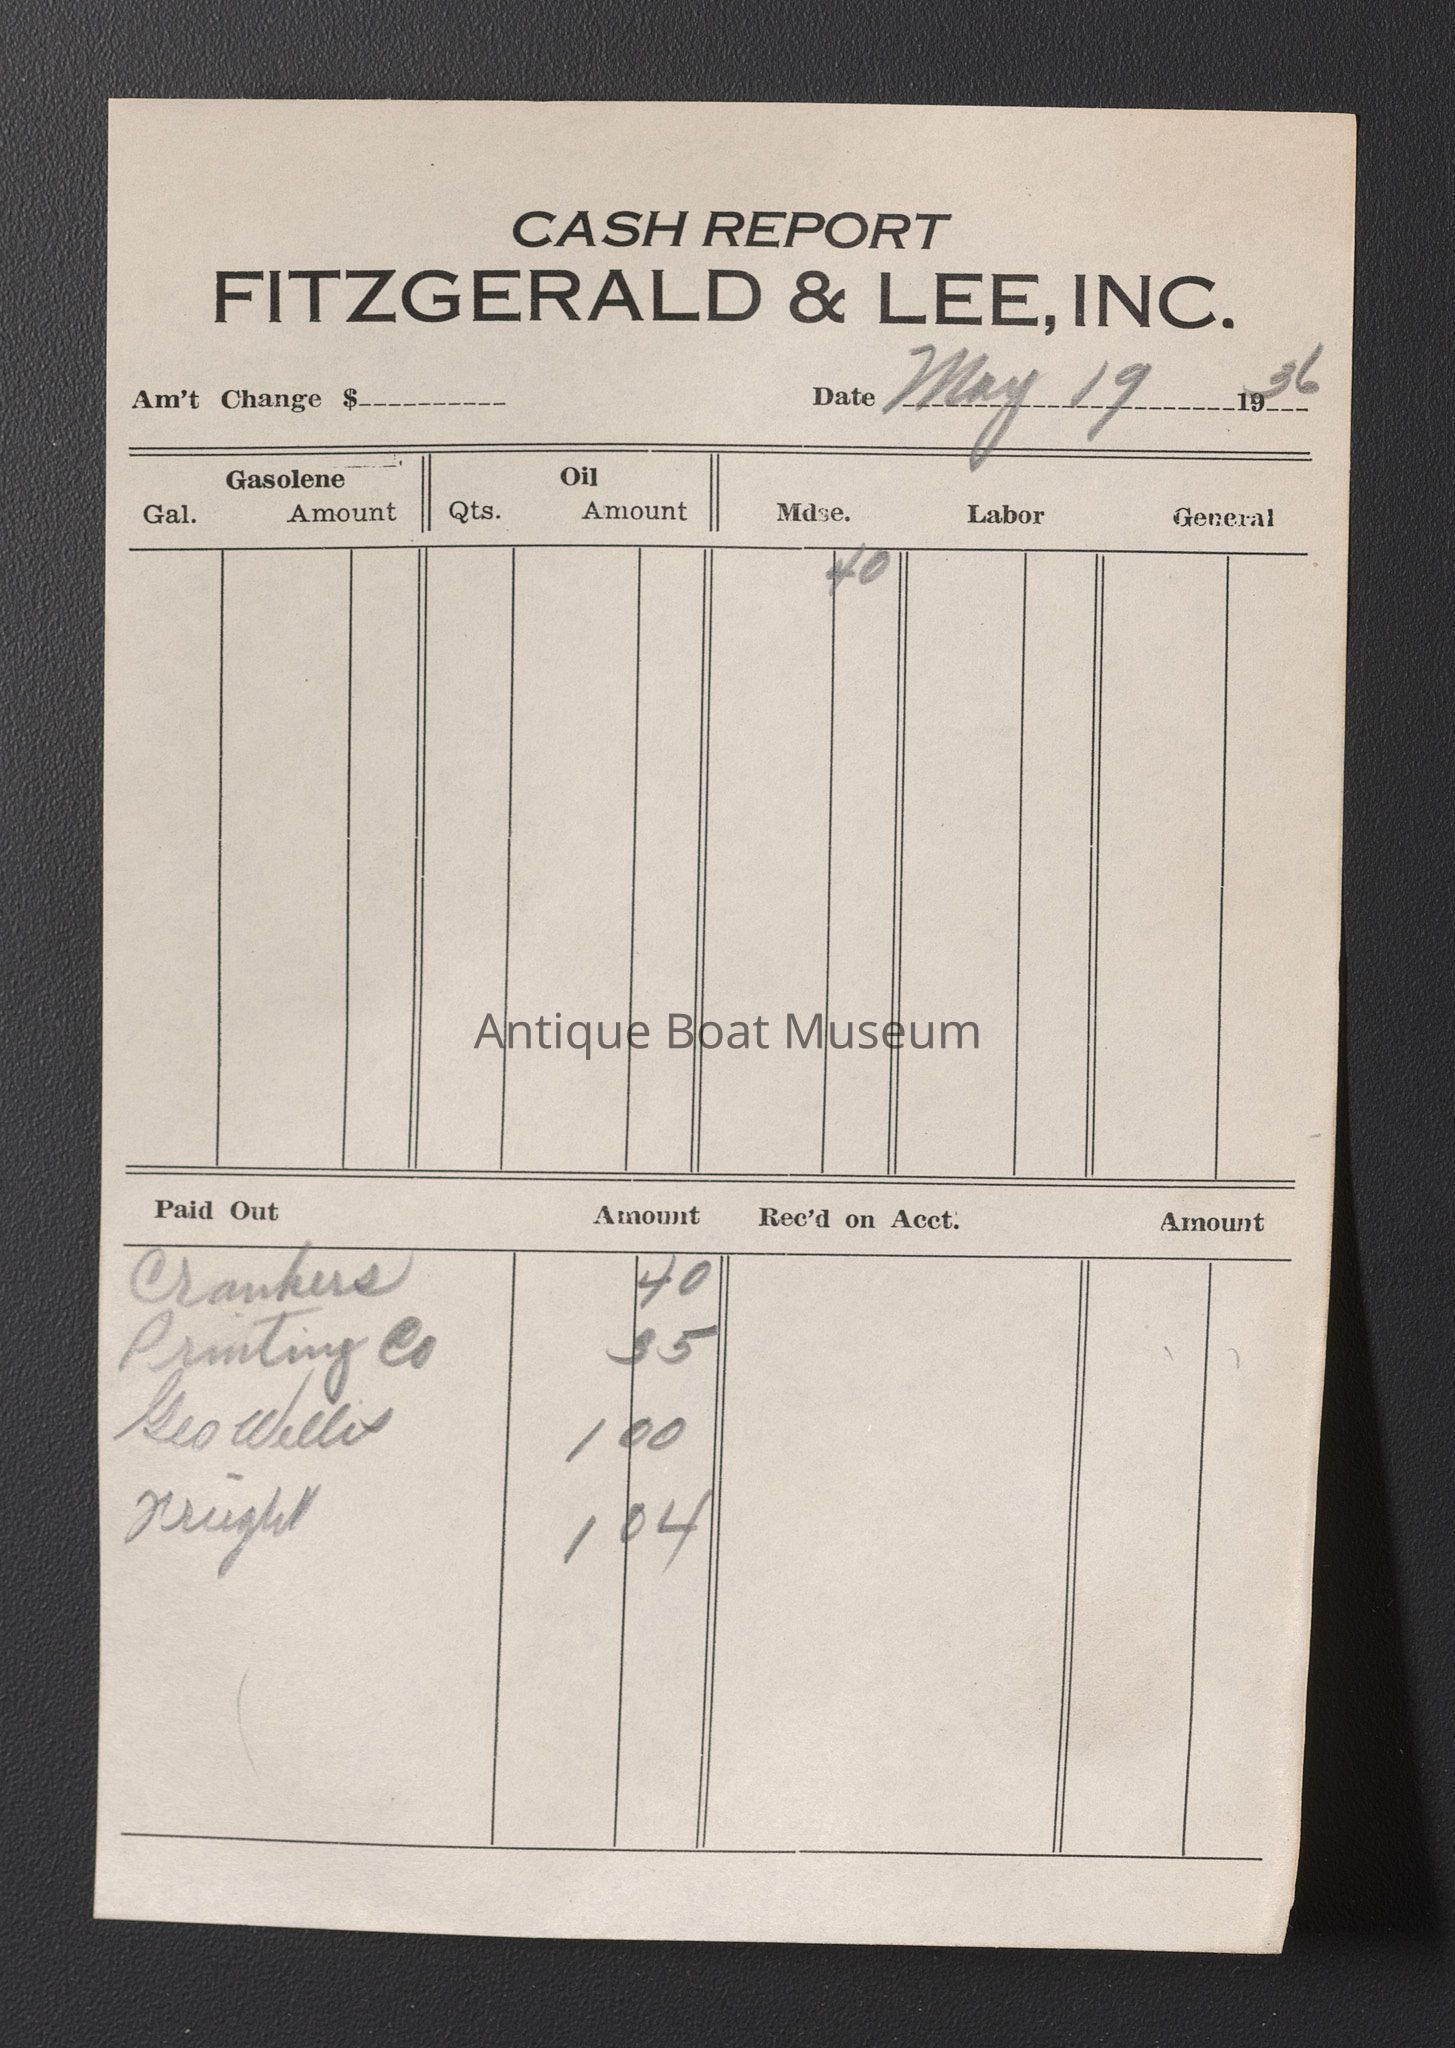 CASH REPORT
FITZGERALD & LEE, INC.
Am't Change $ Date May 19 1936
Gasolene Oil
Gal. Amount Qts. Amount Mdse. Labor General
40
Antique Boat Museum
Paid Out Amount Rec'd on Acct. Amount
Crankers 40
Printing Co 35
Geo Willis 1 00
Frieght 1 04